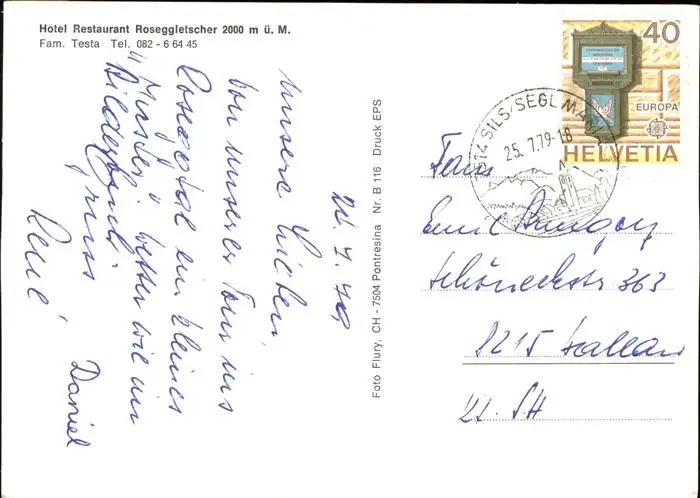 Hotel Restaurant Roseggletscher 2000 m ü. M.
Fam. Testa Tel. 082 - 6 64 45
24. 7. 79
Unsere Lieben,
Von unserer Tour ins
Roseggtal ein kleines
"Muster", besser wie im
Bilderbuch.
Gruss
René
Daniel
Foto Flury, CH - 7504 Pontresina Nr. B 116 Druck EPS
40
EUROPA
HELVETIA
7514 SILS/SEGL MARIA
25. 7. 79 - 18
Fam.
Emil
Schöneckstr 363
8215 Hallau
Kt. SH